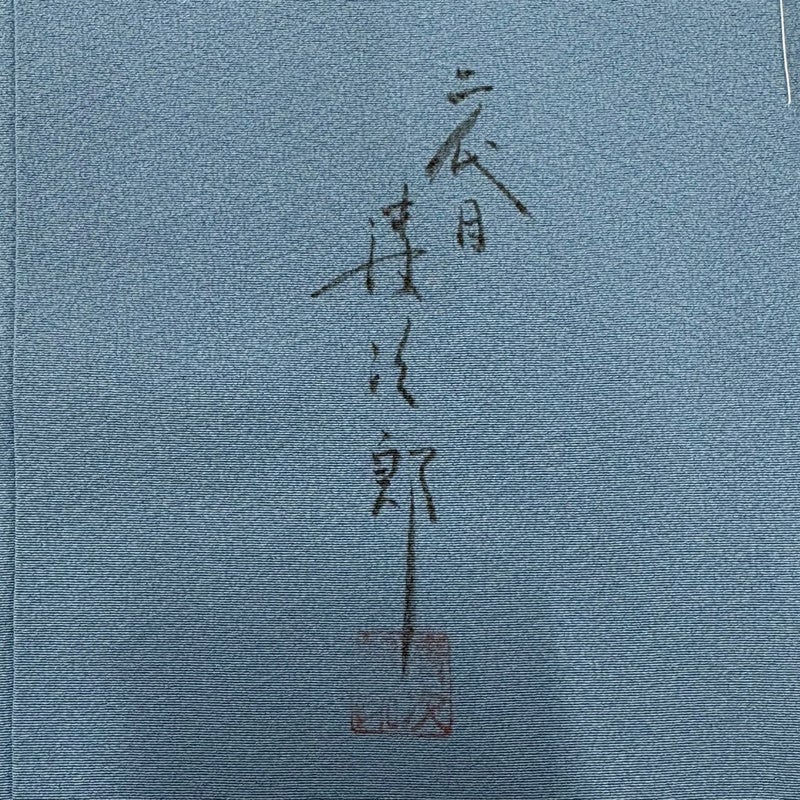 二代目
次郎